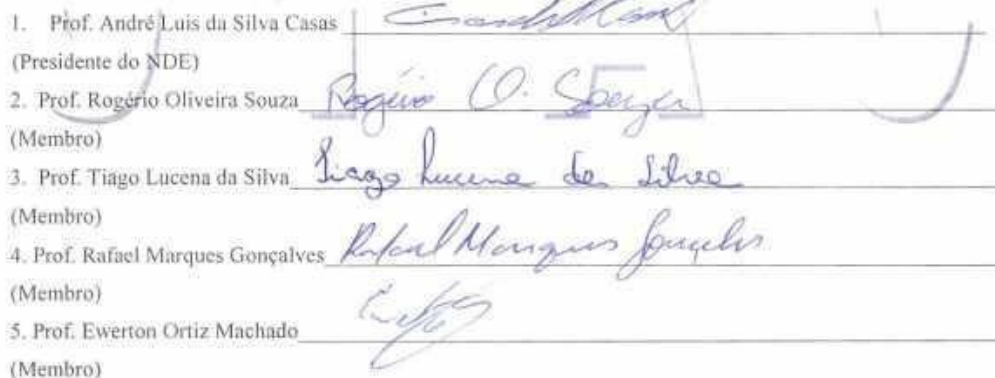 1. Prof. André Luis da Silva Casas
(Presidente do NDE)
2. Prof. Rogério Oliveira Souza Rogério O. Souza
(Membro)
3. Prof. Tiago Lucena da Silva Tiago Lucena da Silva
(Membro)
4. Prof. Rafael Marques Gonçalves Rafael Marques Gonçalves
(Membro)
5. Prof. Ewerton Ortiz Machado
(Membro)